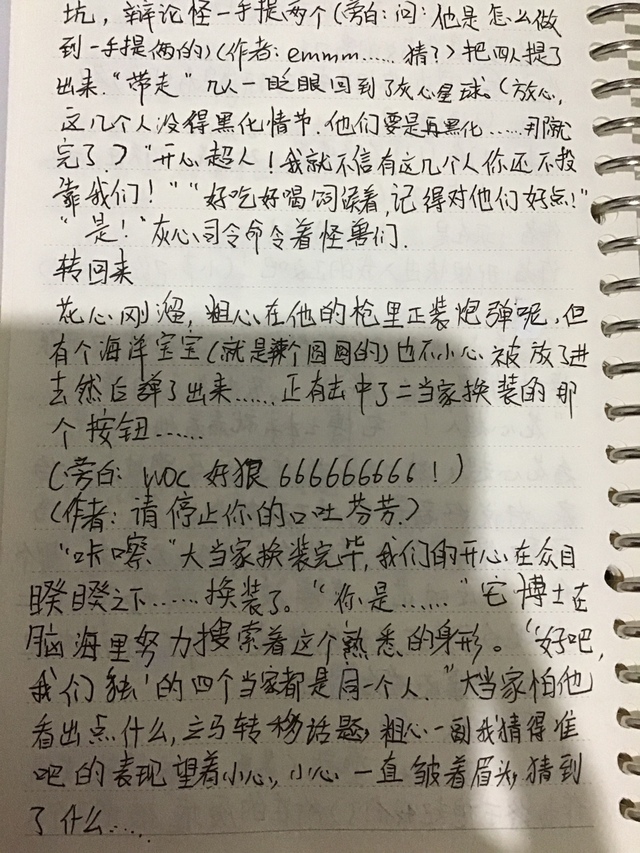 坑，辩论怪一手提两个(旁白：问：他是怎么做
到一手提俩的)(作者：emmm……猜?)把四人提了
出来."带走"几人一眨眼回到了灰心星球。(放心，
这几个人没得黑化情节.他们要是再黑化……那就
完了.)"开心超人！我就不信有这几个人你还不投
靠我们！""好吃好喝伺候着,记得对他们好点！"
"是！"灰心司令命令着怪兽们.
转回来
花心刚溜，粗心在他的枪里正装炮弹呢，但
有个海洋宝宝(就是辣个圆圆的)也不小心被放了进
去然后弹了出来……正击中了二当家换装的那
个按钮……
(旁白：woc 好狠 666666666！)
(作者：请停止你的口吐芬芳.)
"咔嚓"大当家换装完毕,我们的开心在众目
睽睽之下……换装了。"你是……"宅博士在
脑海里努力搜索着这个熟悉的身形。"好吧,
我们的四个当家都是同一个人."大当家怕他
看出点什么,立马转移话题,粗心一副我猜得准
吧的表现望着小心,小心一直皱着眉头,猜到
了什么……